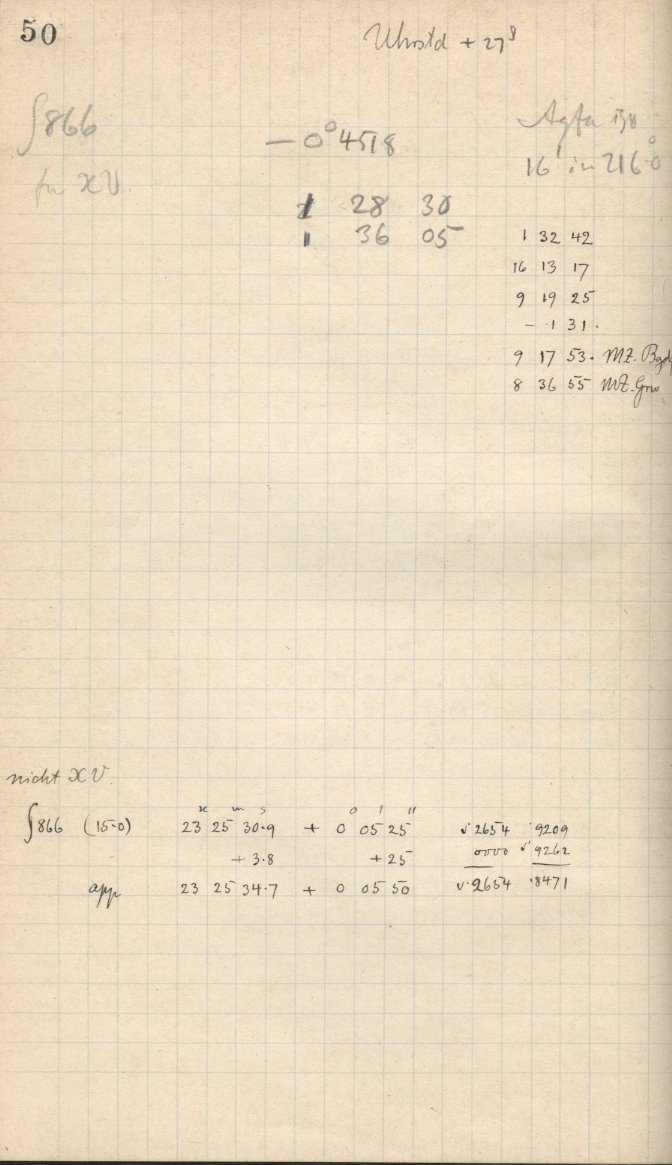 50
Uhrstd + 27ˢ
∫866
für XV
- 0° 4518
Agfa
16' in 216°0
1 28 30
1 36 05
1 32 42
16 13 17
9 19 25
- 1 31.
9 17 53. MZ. Bgd
8 36 55 MZ. Grw
nicht XV.
h m s ° ' "
∫866 (15·0) 23 25 30·9 + 0 05 25 2654 ·9209
+ 3·8 + 25 0000 9262
app 23 25 34·7 + 0 05 50 ·2654 ·8471